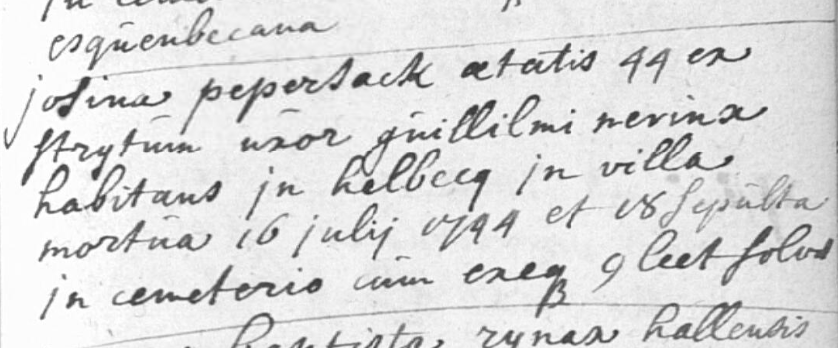 esquenbecana
josina pepersack ætatis 44 ex
strytum uxor guillilmi nerinx
habitans jn helbecq jn villa
mortua 16 julij 1744 et 18 sepulta
jn cemeterio cum exeq 9 lect solvit
baptista rynax hallensis